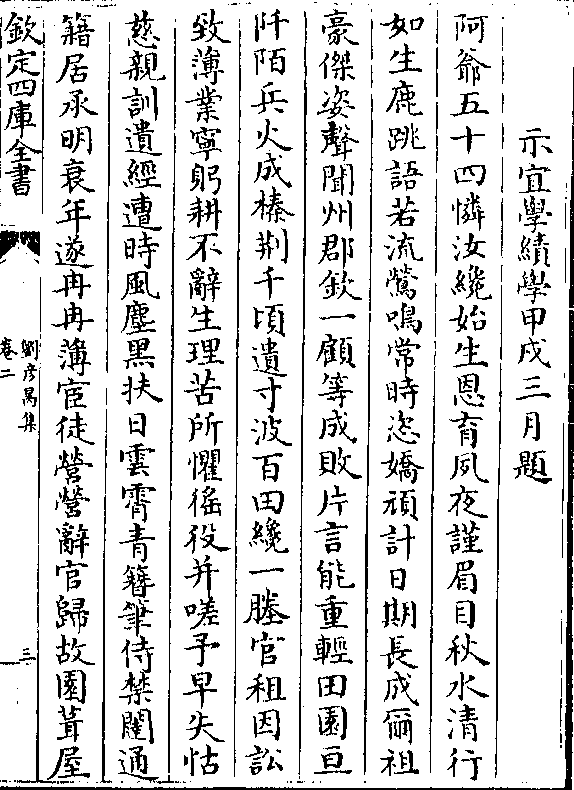 示宜學績學甲戌三月題
阿爺五十四憐汝纔始生恩育夙夜謹眉目秋水清行
如生鹿跳語若流鶯鳴常時恣嬌頑計日期長成爾祖
豪傑姿聲聞州郡欽一顧等成敗片言能重輕田園亘
阡陌兵火成榛荆千頃遺寸波百田纔一塍官租因訟
致薄業寧躬耕不辭生理苦所懼徭役并嗟予早失怙
慈親訓遺經遭時風塵黑扶日雲霄青簪筆侍禁闥通
籍居承明衰年遂冉冉薄宦徒營營辭官歸故園葺屋
欽定四庫全書
劉彦昺集
卷二
三